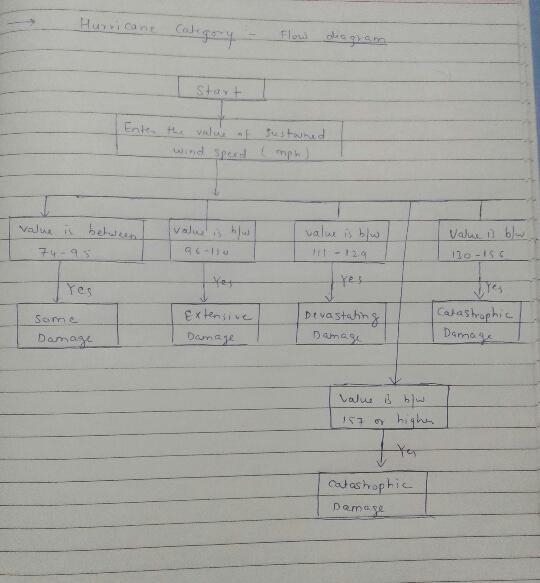 Hurricane Category - Flow diagram
Start
Enter the value of Sustained
wind speed (mph)
Value is between
74-95
Value is b/w
96-110
Value is b/w
111-129
Value is b/w
130-156
Yes
Yes
Yes
Yes
Some
Damage
Extensive
Damage
Devastating
Damage
Catastrophic
Damage
Value is b/w
157 or higher
Yes
Catastrophic
Damage